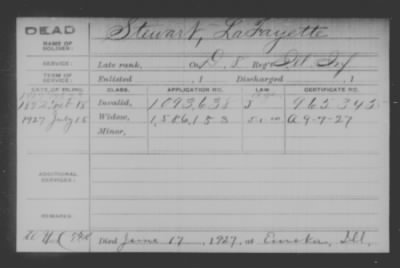 DEAD
NAME OF SOLDIER:
Stewart, LaFayette
SERVICE:
Late rank, Co. D, 8 Reg't Ill. Inf
TERM OF SERVICE:
Enlisted , 1 Discharged , 1
DATE OF FILING. CLASS. APPLICATION NO. LAW. CERTIFICATE NO.
Invalid, 1093,638 965345
1927 July Widow, 1,586,153 A 9-9-27
Minor,
ADDITIONAL SERVICES:
REMARKS:
Died June 17, 1927, at Eureka, Ill.